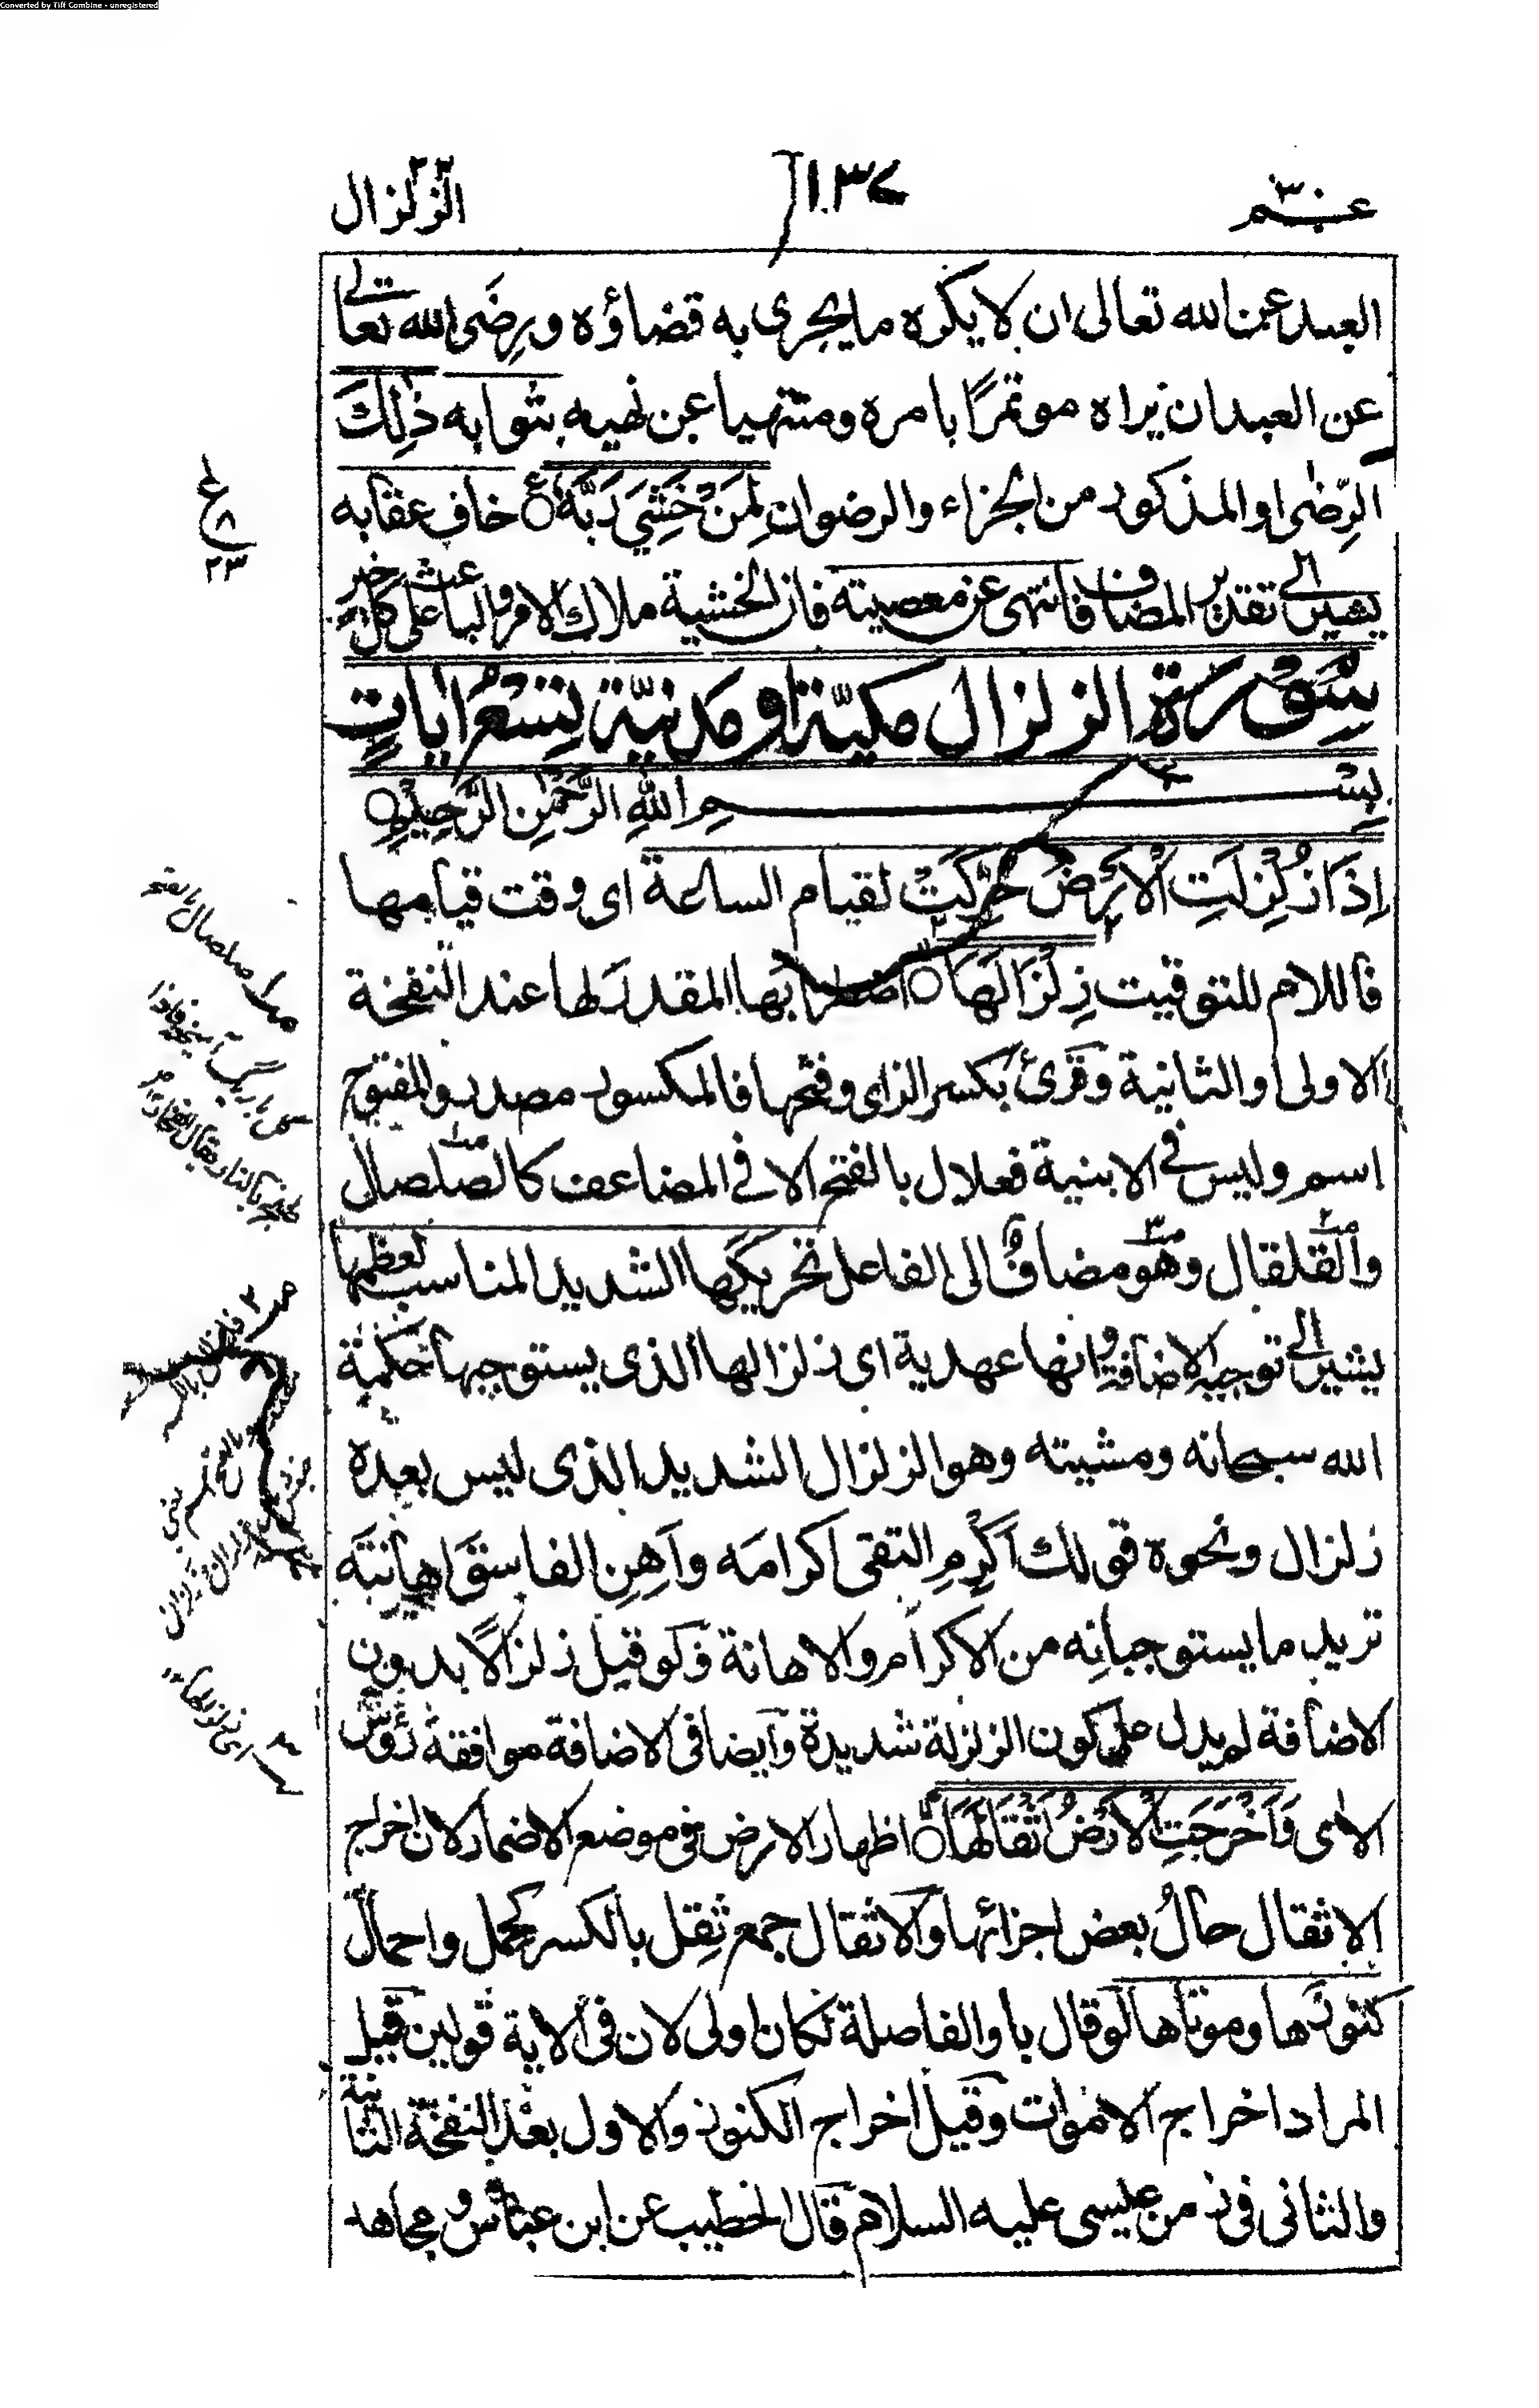 Converted by Tiff Combine - unregistered
عم ٣٠
١٠٣٧
الزلزال
العبد عن الله تعالى ان لا يكره ما يجرى به قضاؤه ورِضَى الله تعالى
عن العبد ان يراه موتمرًا بامره ومنتهيا عن نهيه بثوابه ذٰلِكَ
الرِّضٰى او المذكور من الجزاء والرضوان لِمَنْ خَشِيَ رَبَّهٗ خاف عقابه
يشير الى تقدير المضاف فانتهى عن معصيته فان الخشية ملاك الامر والباعث على كل خير
سُوْرَةُ الزلزال مكيّة او مدنيّة تِسْعُ اٰيَاتٍ
بِسْمِ اللّٰهِ الرَّحْمٰنِ الرَّحِيْمِ
اِذَا زُلْزِلَتِ الْاَرْضُ حُرِّكَتْ لقيام الساعة اى وقت قيامها
فاللام للتوقيت زِلْزَالَهَا اضطرابها المقدر لها عند النفخة
الاولى او الثانية وقرئ بكسر الزاى وفتحها فالمكسور مصدر والمفتوح
اسم وليس فى الابنية فعلال بالفتح الا فى المضاعف كالصلصال
والقلقال وهو مضاف الى الفاعل تحريكها الشديد المناسب لعظمها
يشير الى توجيه الاضافة وانها عهدية اى زلزالها الذى يستوجبها حكمة
الله سبحانه ومشيته وهو الزلزال الشديد الذى ليس بعده
زلزال ونحوه قولك اَكْرِمِ التقى اكرامَه واَهِنِ الفاسقَ اهانتَه
تريد ما يستوجبانِه من الاكرام والاهانة فلو قيل زلزالًا بدون
الاضافة لم يدل على كون الزلزلة شديدة وايضا فى الاضافة موافقة رؤس
الاٰى وَاَخْرَجَتِ الْاَرْضُ اَثْقَالَهَا اظهار الارض فى موضع الاضمار لان اخراج
الاثقال حالُ بعض اجزائها والاثقال جمع ثِقل بالكسر كحمل واحمال
كنوزها وموتاها لو قال باو الفاصلة لكان اولى لان فى الاية قولين قيل
المراد اخراج الاموات وقيل اخراج الكنوز والاول بعد النفخة الثانية
والثانى فى زمن عيسى عليه السلام قال الخطيب عن ابن عباس ومجاهد